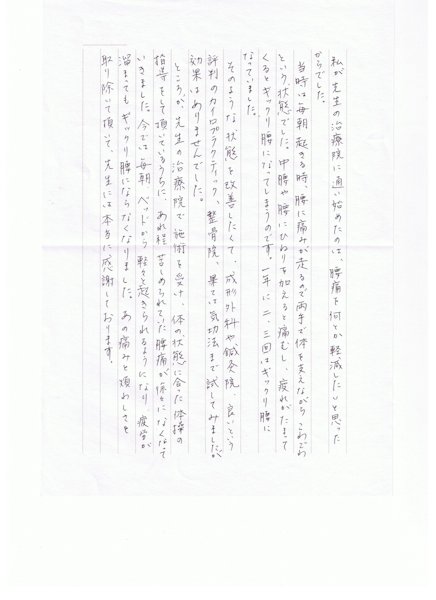 私が先生の治療院に通い始めたのは、腰痛を何とか軽減したいと思った
からでした。
当時は毎朝起きる時、腰に痛みが走るので両手で体を支えながらこわごわ
という状態でした。中腰や腰にひねりを加えると痛むし、疲れがたまって
くるとギックリ腰になってしまうのです。一年に二、三回はギックリ腰に
なっていました。
そのような状態を改善したくて、成形外科や鍼灸院、良いという
評判のカイロプラクティック、整骨院、果ては気功法まで試してみましたが
効果はありませんでした。
ところが、先生の治療院で施術を受け、体の状態に合った体操の
指導をして頂いているうちに、あれ程苦しめられていた腰痛が徐々になくなって
いきました。今では毎朝ベッドから軽々と起きられるようになり疲労が
溜まってもギックリ腰にならなくなりました。あの痛みと煩わしさを
取り除いて頂いて、先生には本当に感謝しております。